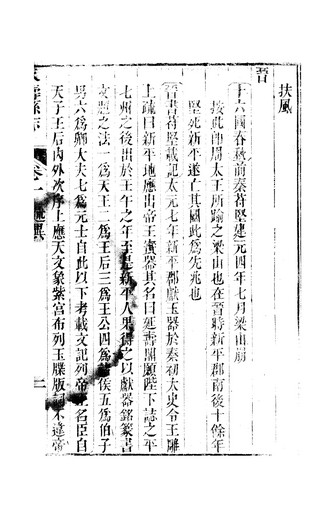 扶風
晉
十六國春秋前秦苻堅建元四年七月梁山崩
按此卽周太王所踰之梁山也在晉時新平郡南後十餘年
堅死新平遂亡其國此爲先兆也
晉書苻堅載記太元七年新平郡獻玉器於秦初太史令王雕
上疏曰新平地應出帝王寶器其名曰延壽閽願陛下誌之平
七州之後出於壬午之年至是新平人果得之以獻器銘篆書
文題之法一爲天王二爲王后三爲王公四爲諸侯五爲伯子
男六爲卿大夫七爲元士自此以下考載文記列帝王名臣自
天子王后內外次序上應天文象紫宮布列玉牒版詞不違帝
縣志 卷一 二